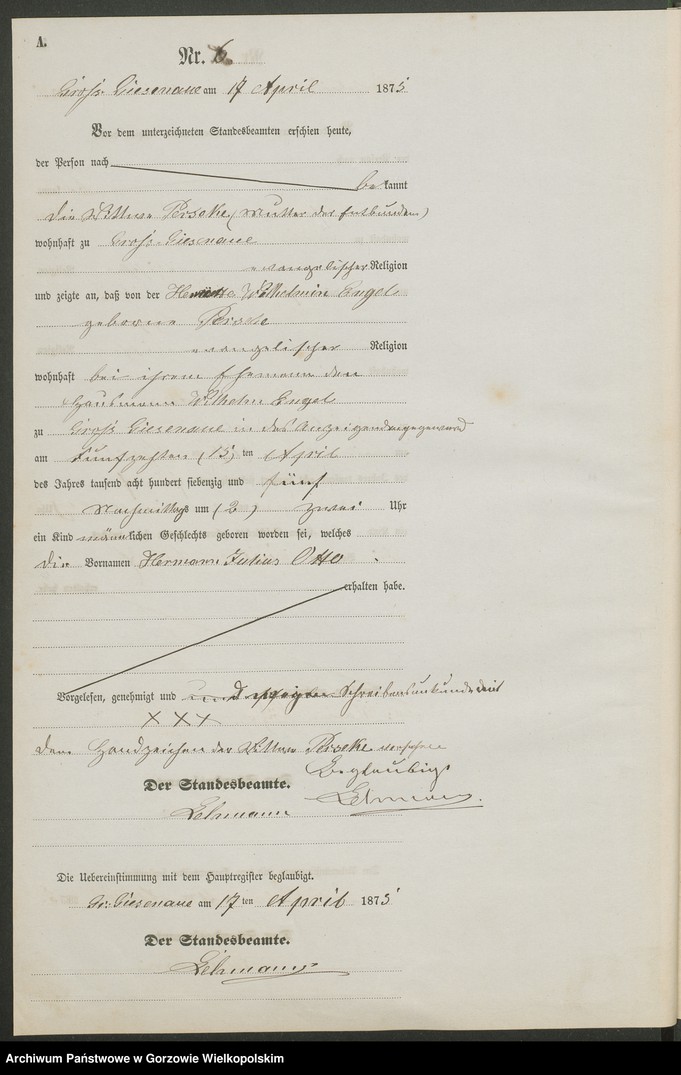 A.
Nr. 6.
Gross Ciesenaue am 17 April 1875
Vor dem unterzeichneten Standesbeamten erschien heute,
der Person nach
bekannt
die Wittwe Perseke (Mutter der Entbundenen)
wohnhaft zu Gross Ciesenaue
evangelischer Religion
und zeigte an, daß von der Wilhelmin Engel
geborene
evangelischer Religion
wohnhaft bei ihrem Ehemann den
Hausmann Wilhelm Engel
zu Gross Ciesenaue in des
am fünfzehten (15) ten April
des Jahres tausend acht hundert siebenzig und fünf
Nachmittags um (2) zwei Uhr
ein Kind männlichen Geschlechts geboren worden sei, welches
die Vornamen Hermann Julius Otto
erhalten habe.
Vorgelesen, genehmigt und Schreibensunkunde mit
XXX
dem Handzeichen der Wittwe Perseke versehen
Beglaubigt
Der Standesbeamte. Lehmann
Lehmann
Die Uebereinstimmung mit dem Hauptregister beglaubigt.
Gr: Ciesenaue am 17 ten April 1875
Der Standesbeamte.
Lehmann
Archiwum Państwowe w Gorzowie Wielkopolskim